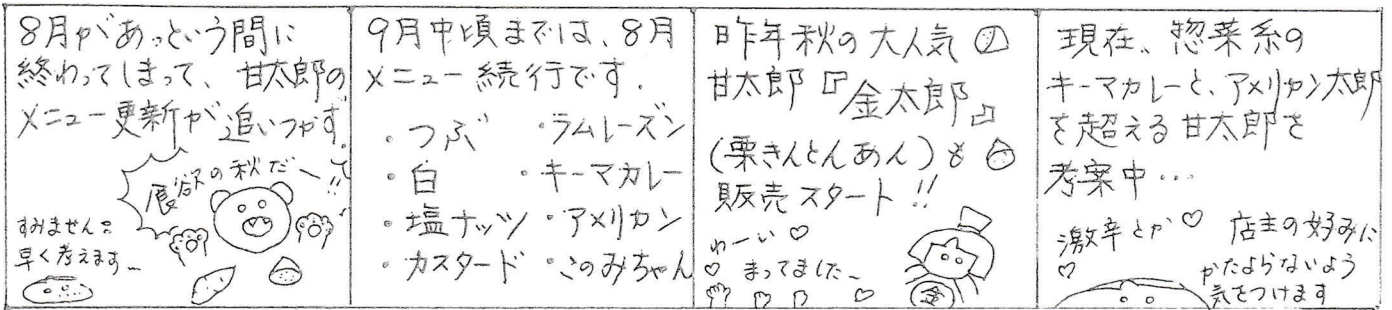 8月があっという間に
終わってしまって、甘太郎の
メニュー更新が追いつかず。
食欲の秋だー!!
すみません
早く考えます~
9月中頃までは、8月
メニュー続行です.
・つぶ ・ラムレーズン
・白 ・キーマカレー
・塩ナッツ ・アメリカン
・カスタード ・このみちゃん
昨年秋の大人気
甘太郎『金太郎』
(栗きんとんあん)も
販売スタート!!
わーい♡
♡ まってました~
金
現在、惣菜系の
キーマカレーと、アメリカン太郎
を超える甘太郎を
考案中…
激辛とか♡
♡
店主の好みに
かたよらないよう
気をつけます